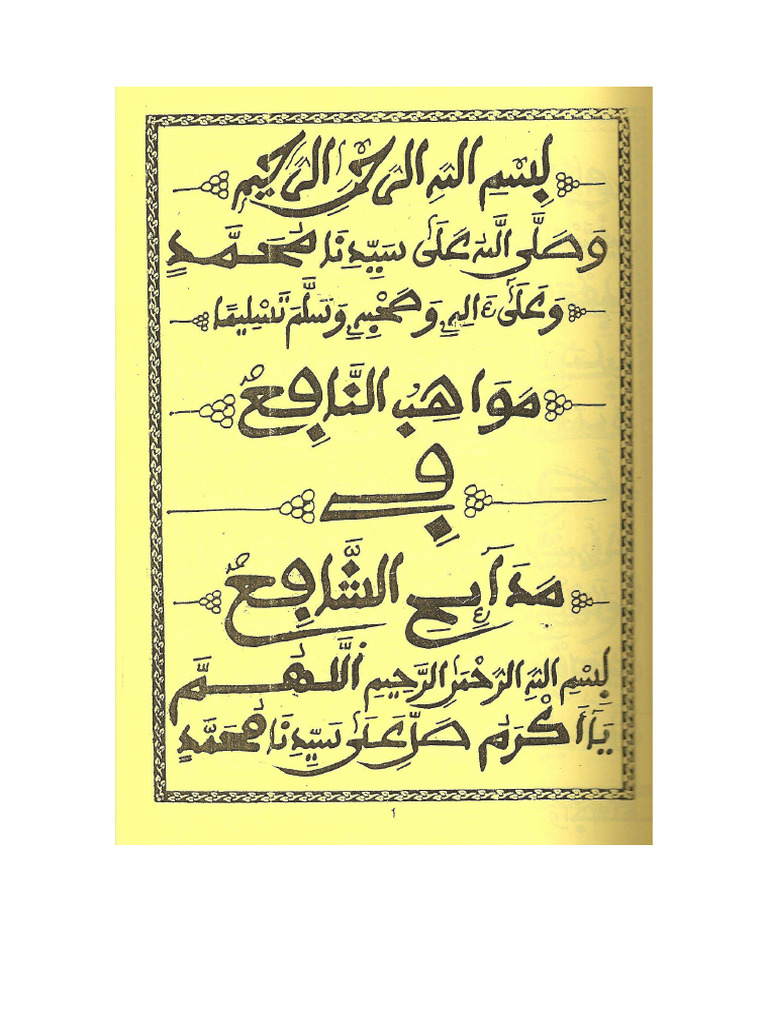 بِسْمِ اللهِ الرَّحْمٰنِ الرَّحِيمِ
وَصَلَّى اللهُ عَلَىٰ سَيِّدِنَا مُحَمَّدٍ
وَعَلَىٰ ءَالِهِ وَصَحْبِهِ وَسَلَّمَ تَسْلِيمًا
مَوَاهِبُ النَّافِعْ
فِي
مَدَآئِحِ الشَّافِعْ
بِسْمِ اللهِ الرَّحْمٰنِ الرَّحِيمِ اَللَّهُمَّ
يَآ أَكْرَمُ صَلِّ عَلَىٰ سَيِّدِنَا مُحَمَّدٍ
١